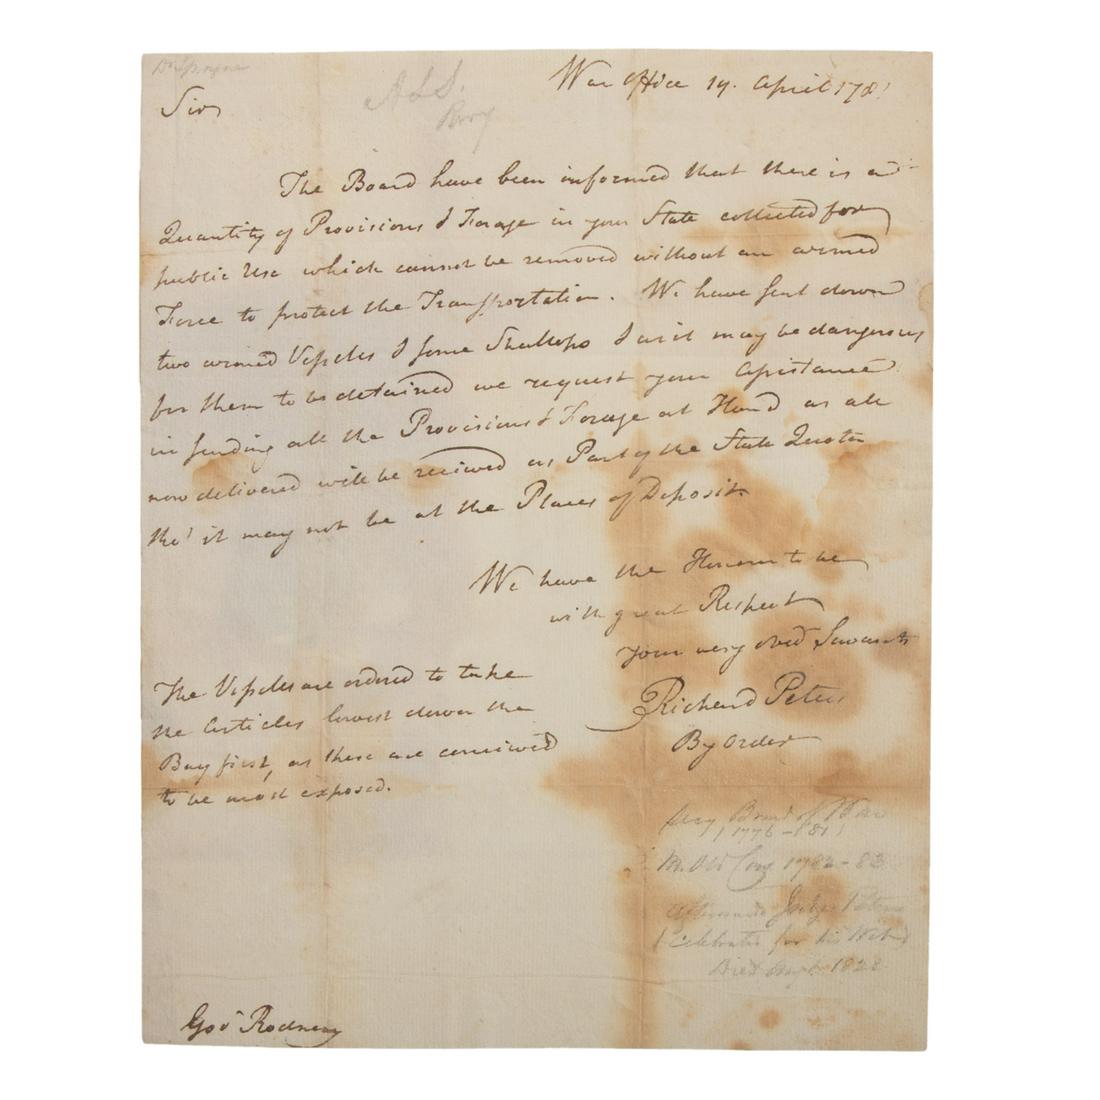 Dr Sprague
A L S.
Sir
War Office 19. April 178
The Board have been informed that there is a
Quantity of Provisions & Forage in your State collected for
public Use which cannot be removed without an armed
Force to protect the Transportation. We have sent down
two armed Vessels & some Shallops & as it may be dangerous
for them to be detained we request your Assistance
in sending all the Provisions & Forage at Hand as all
now delivered will be recieved as Part of the State Quota
tho' it may not be at the Places of Deposit.
We have the Honour to be
with great Respect
your very obed Servants
Richard Peters
By order
The Vessels are ordered to take
the Articles lowest down the
Bay first, as these are concieved
to be most exposed.
Secy Board of War
(1776-81)
M. Old Cong 1782-83
afterwards Judge Peters
celebrated for his Wit
Died 1828
Govr Rodney